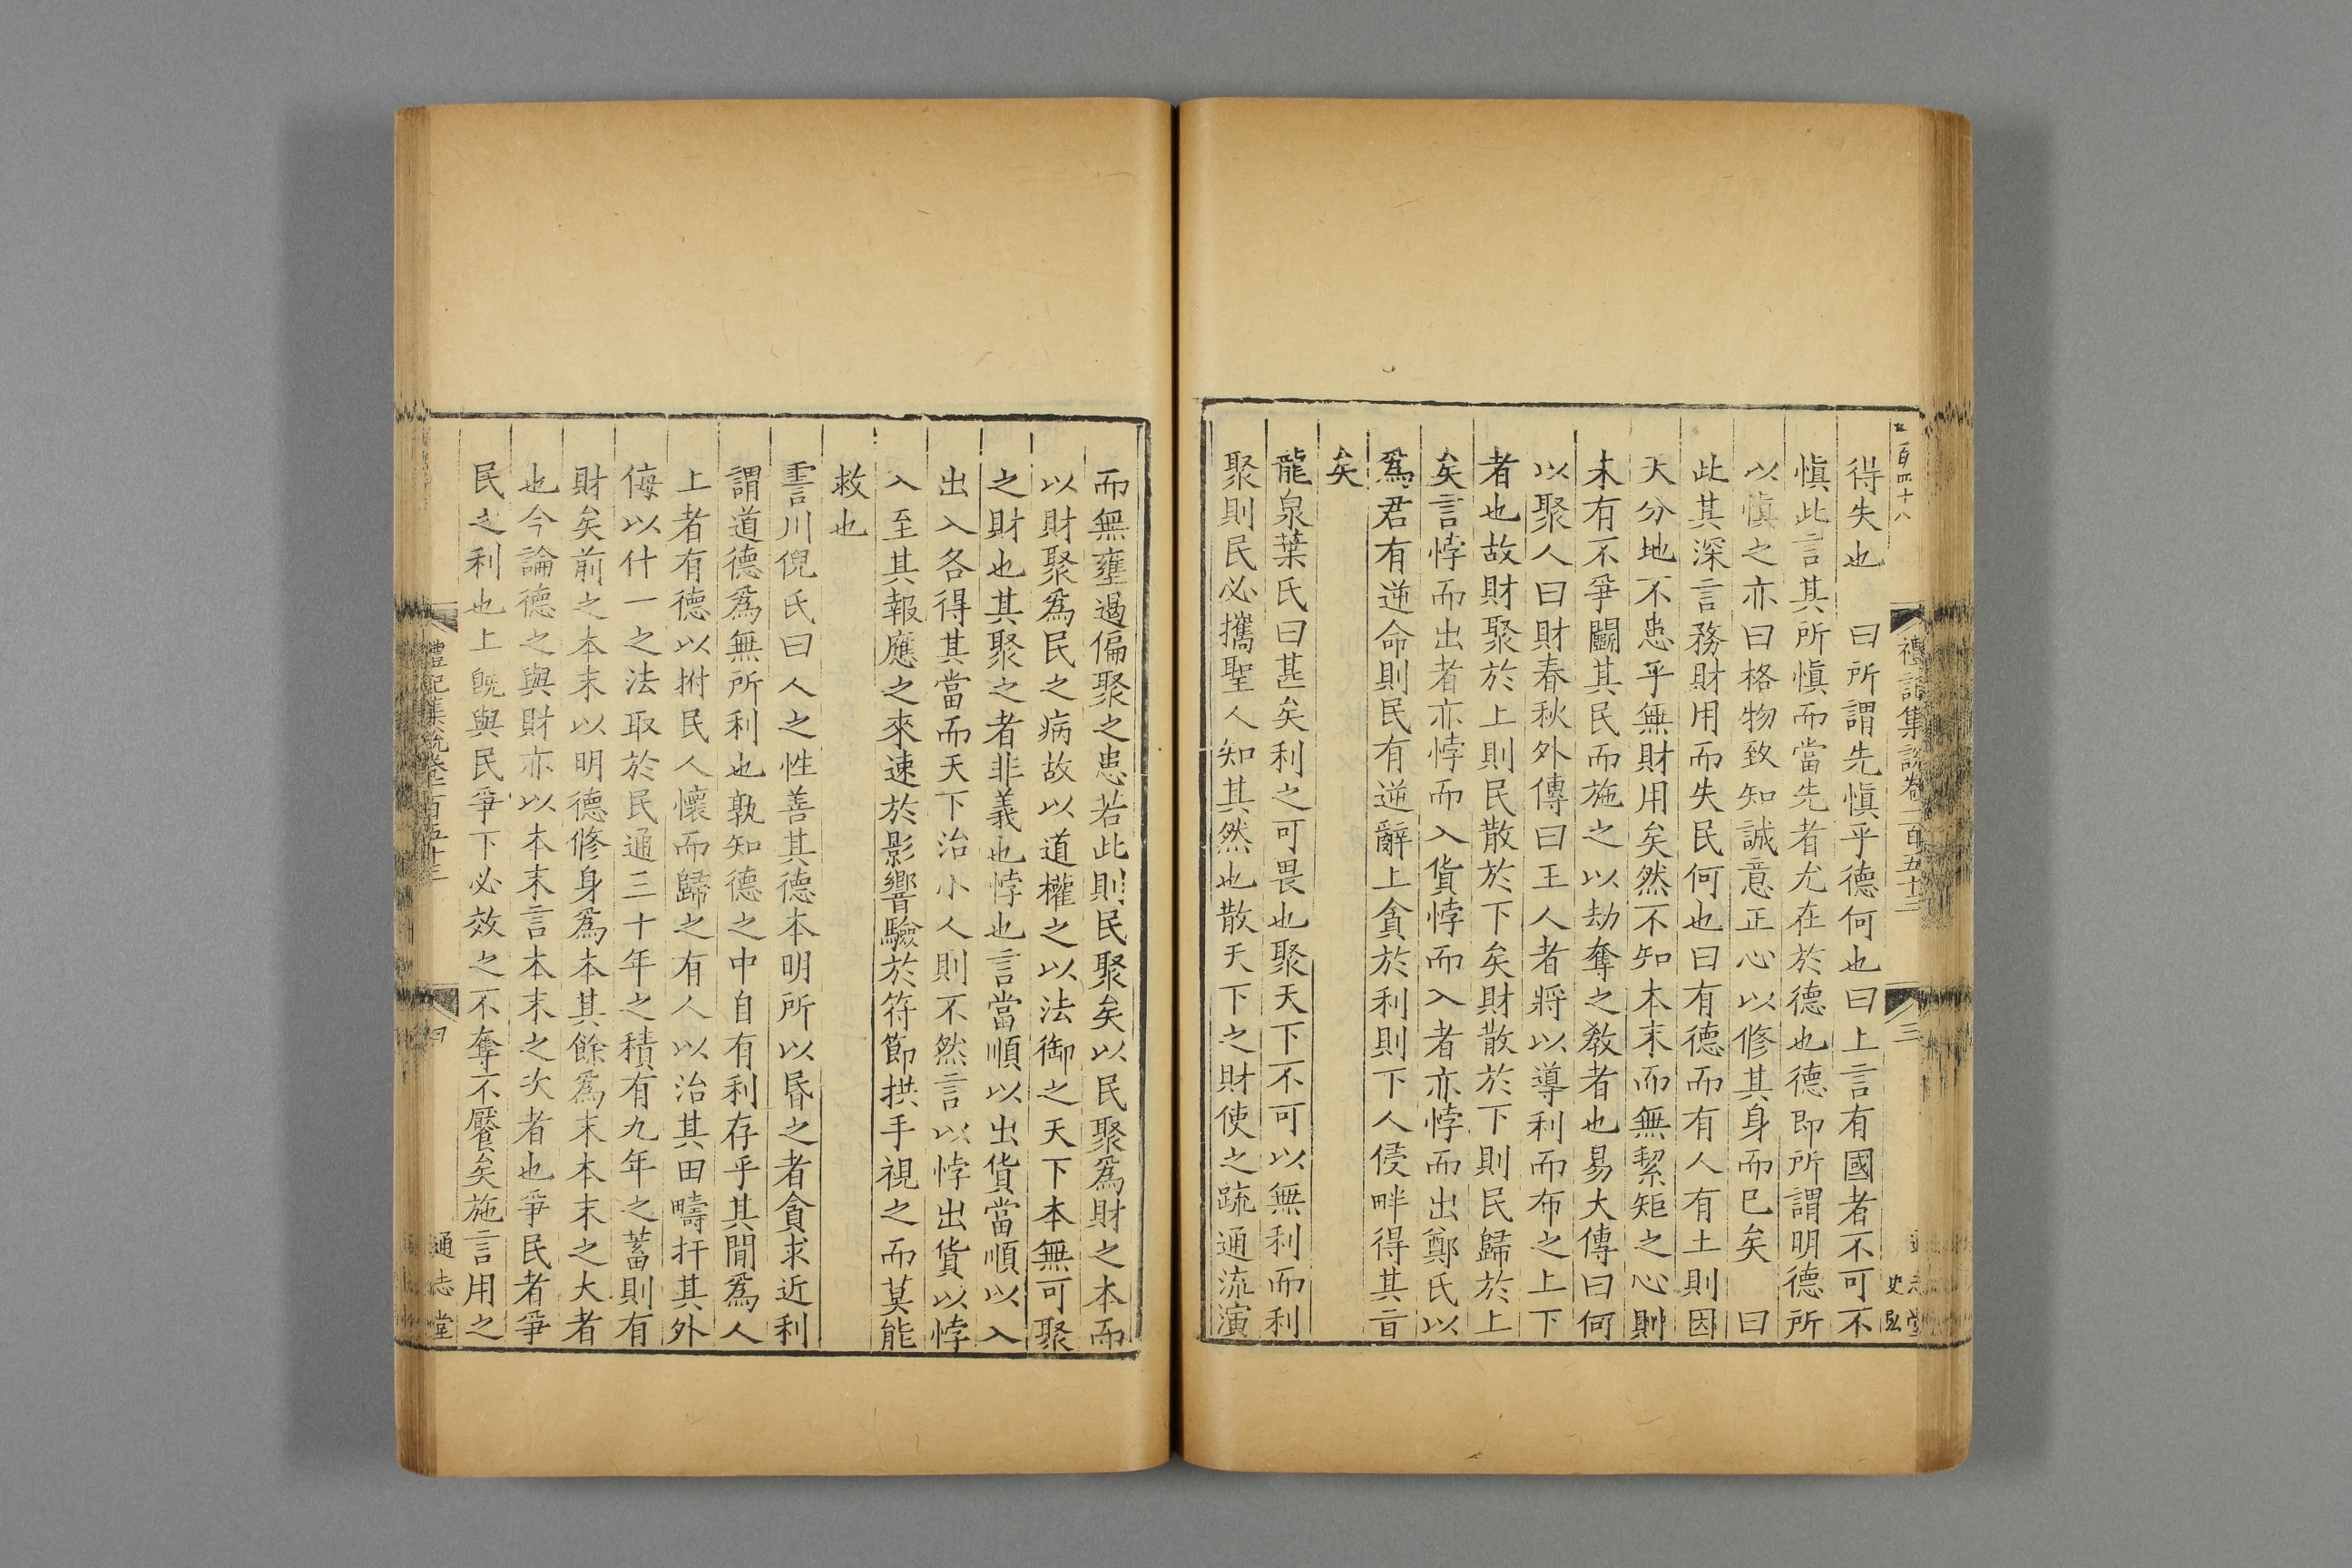 得失也　曰所謂先慎乎德何也曰上言有國者不可不
慎此言其所慎而當先者尤在於德也德即所謂明德所
以慎之亦曰格物致知誠意正心以修其身而已矣　曰
此其深言務財用而失民何也曰有德而有人有土則因
天分地不患乎無財用矣然不知本末而無絜矩之心則
未有不爭鬭其民而施之以劫奪之敎者也易大傳曰何
以聚人曰財春秋外傳曰王人者將以導利而布之上下
者也故財聚於上則民散於下矣財散於下則民歸於上
矣言悖而出者亦悖而入貨悖而入者亦悖而出鄭氏以
爲君有逆命則民有逆辭上貪於利則下人侵畔得其旨
矣
龍泉葉氏曰甚矣利之可畏也聚天下不可以無利而利
聚則民必攜聖人知其然也散天下之財使之疏通流演
禮記集說卷一百五十三
三
而無壅遏偏聚之患若此則民聚矣以民聚爲財之本而
以財聚爲民之病故以道權之以法御之天下本無可聚
之財也其聚之者非義也悖也言當順以出貨當順以入
出入各得其當而天下治小人則不然言以悖出貨以悖
入至其報應之來速於影響驗於符節拱手視之而莫能
救也
霅川倪氏曰人之性善其德本明所以昬之者貪求近利
謂道德爲無所利也孰知德之中自有利存乎其間爲人
上者有德以拊民人懷而歸之有人以治其田疇扞其外
侮以什一之法取於民通三十年之積有九年之蓄則有
財矣前之本末以明德修身爲本其餘爲末本末之大者
也今論德之與財亦以本末言本末之次者也爭民者爭
民之利也上旣與民爭下必效之不奪不饜矣施言用之
禮記集說卷一百五十三
四
通志堂